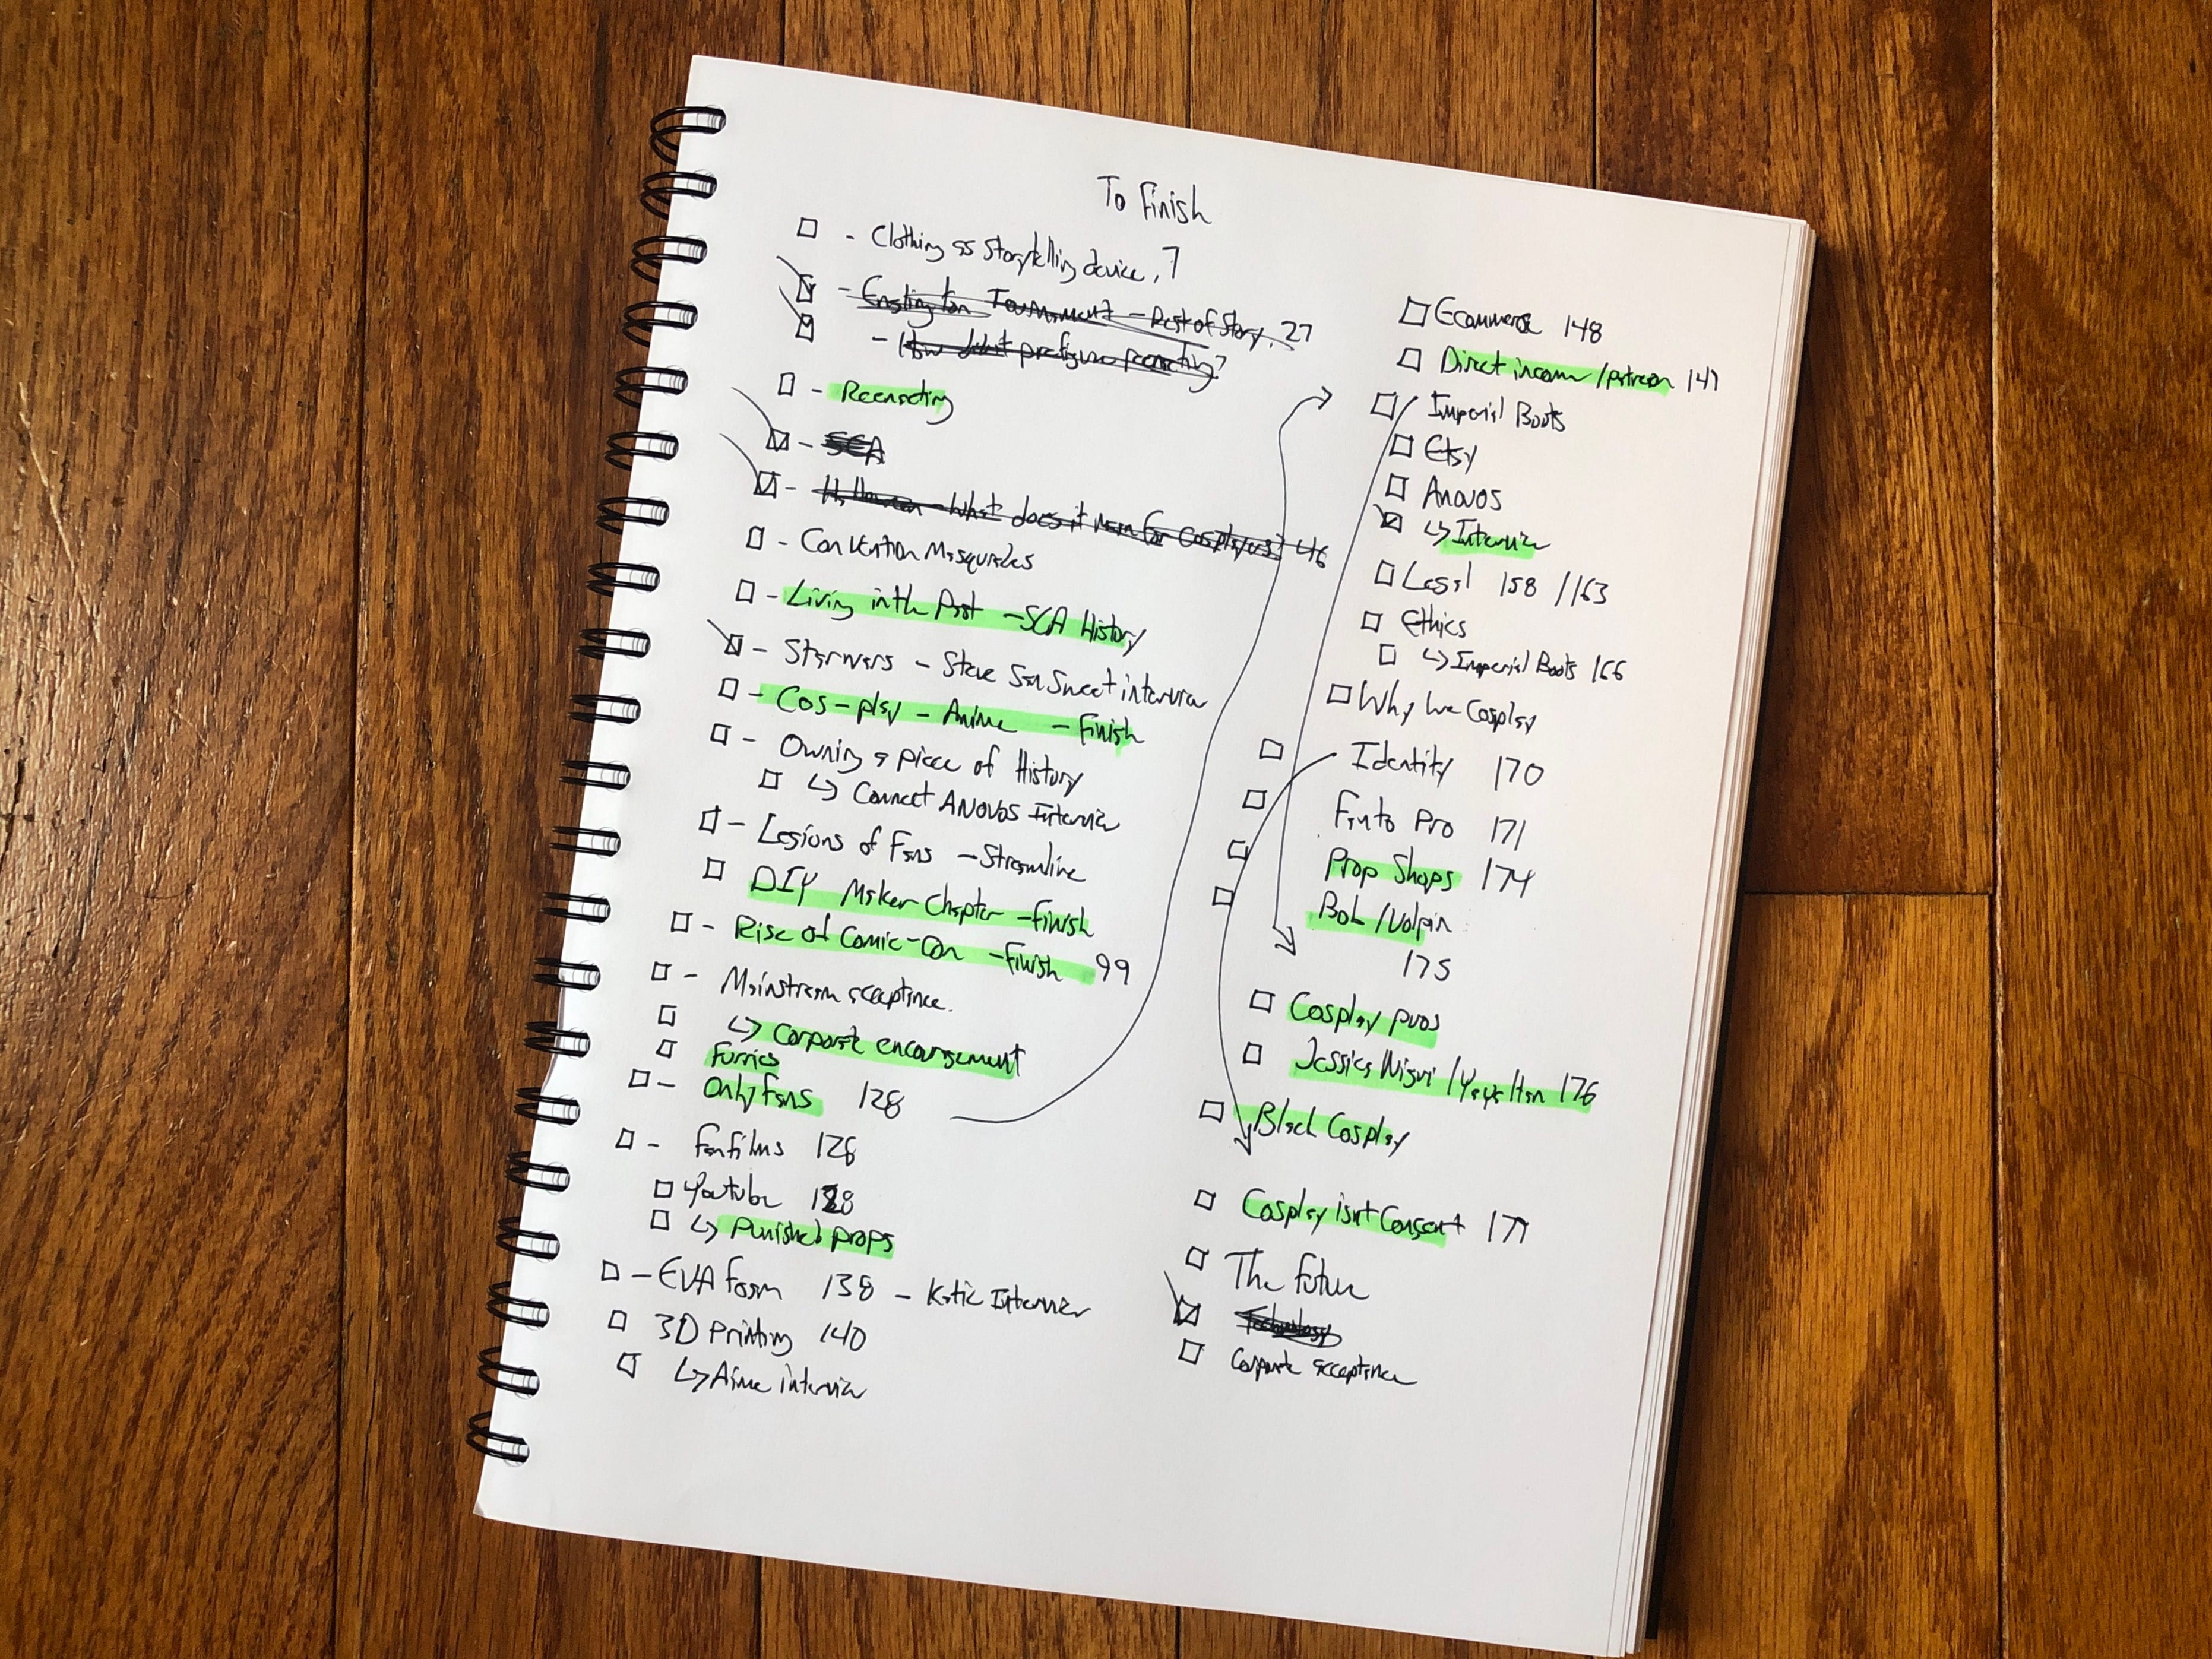 To Finish
- Clothing as Storytelling device, 7
- Tournament - Rest of Story, 27
- How does it prefigure reenacting?
- Reenacting
- SCA
- Halloween - What does it mean for cosplayers? 46
- Convention Masquerades
- Living in the Past - SCA History
- Starwars - Steve Sansweet interview
- Cos-play - Anime - Finish
- Owning a piece of History
↳ Connect ANOVOS Interview
- Legions of Fans - Streamline
DIY Maker Chapter - finish
- Rise of Comic-Con - finish 99
- Mainstream acceptance.
↳ Corporate encouragement
Furries
- Only Fans 128
- Fanfilms 128
Youtube 128
↳ Punished props
- EVA Foam 138 - Katie Interview
3D Printing 140
↳ Aime interview
Ecommerce 148
Direct income / patreon 149
Imperial Boots
Etsy
Anovos
↳ Interview
Legal 158 / 163
Ethics
↳ Imperial Boots 166
Why we Cosplay
Identity 170
Fan to Pro 171
Prop Shops 174
Bob / Volpin
175
Cosplay pros
Jessica Nigri / Yaya Han 176
Black Cosplay
Cosplay isnt Consent 177
The Future
Technology
Corporate acceptance